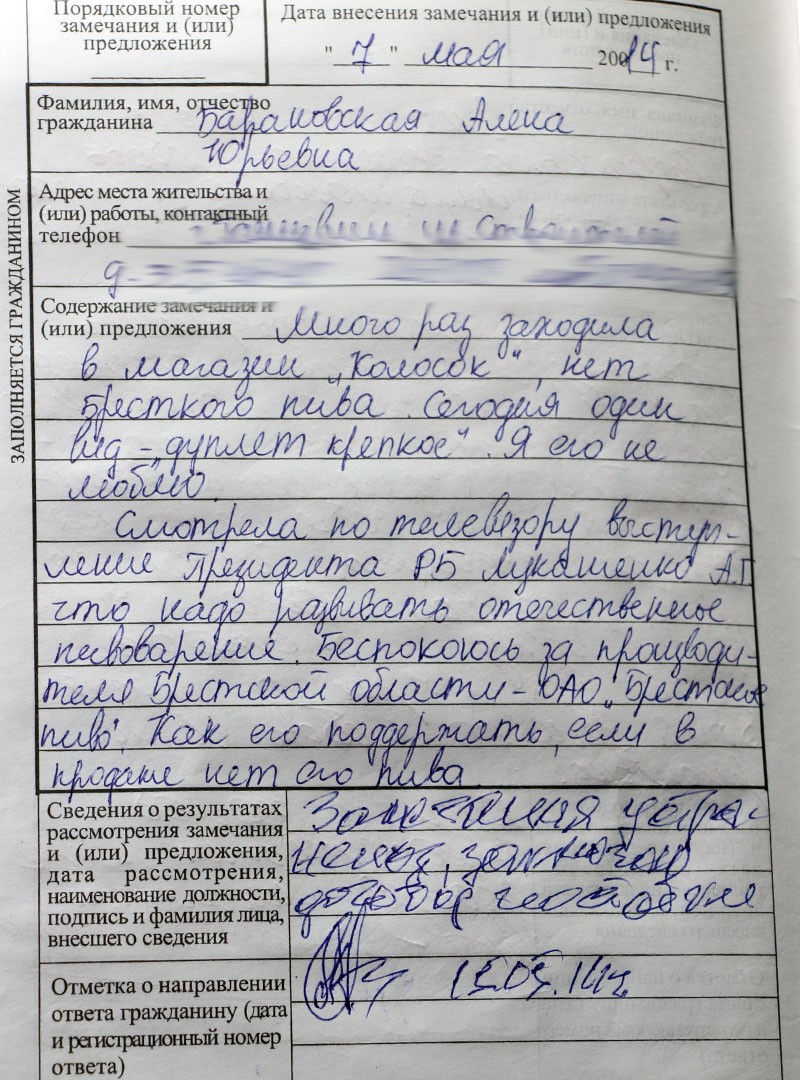 Порядковый номер
замечания и (или)
предложения
Дата внесения замечания и (или) предложения
" 7 " мая 2014 г.
Фамилия, имя, отчество
гражданина Барановская Алена
Юрьевна
Адрес места жительства и
(или) работы, контактный
телефон
ЗАПОЛНЯЕТСЯ ГРАЖДАНИНОМ
Содержание замечания и
(или) предложения Много раз заходила
в магазин „Колосок", нет
Брестког пива. Сегодня один
вид - „дуплет крепкое". Я его не
люблю.
Смотрела по телевезору выступ-
ление Президента РБ Лукашенко А.Г
что надо развивать отечественное
пивоварение. Беспокоюсь за производи-
теля Брестской области - ОАО „Брестское
пиво". Как его поддержать, если в
продаже нет его пива
Сведения о результатах
рассмотрения замечания
и (или) предложения,
дата рассмотрения,
наименование должности,
подпись и фамилия лица,
внесшего сведения
Замечания устра-
нены, заключён
договор поставки
15.05.14г
Отметка о направлении
ответа гражданину (дата
и регистрационный номер
ответа)